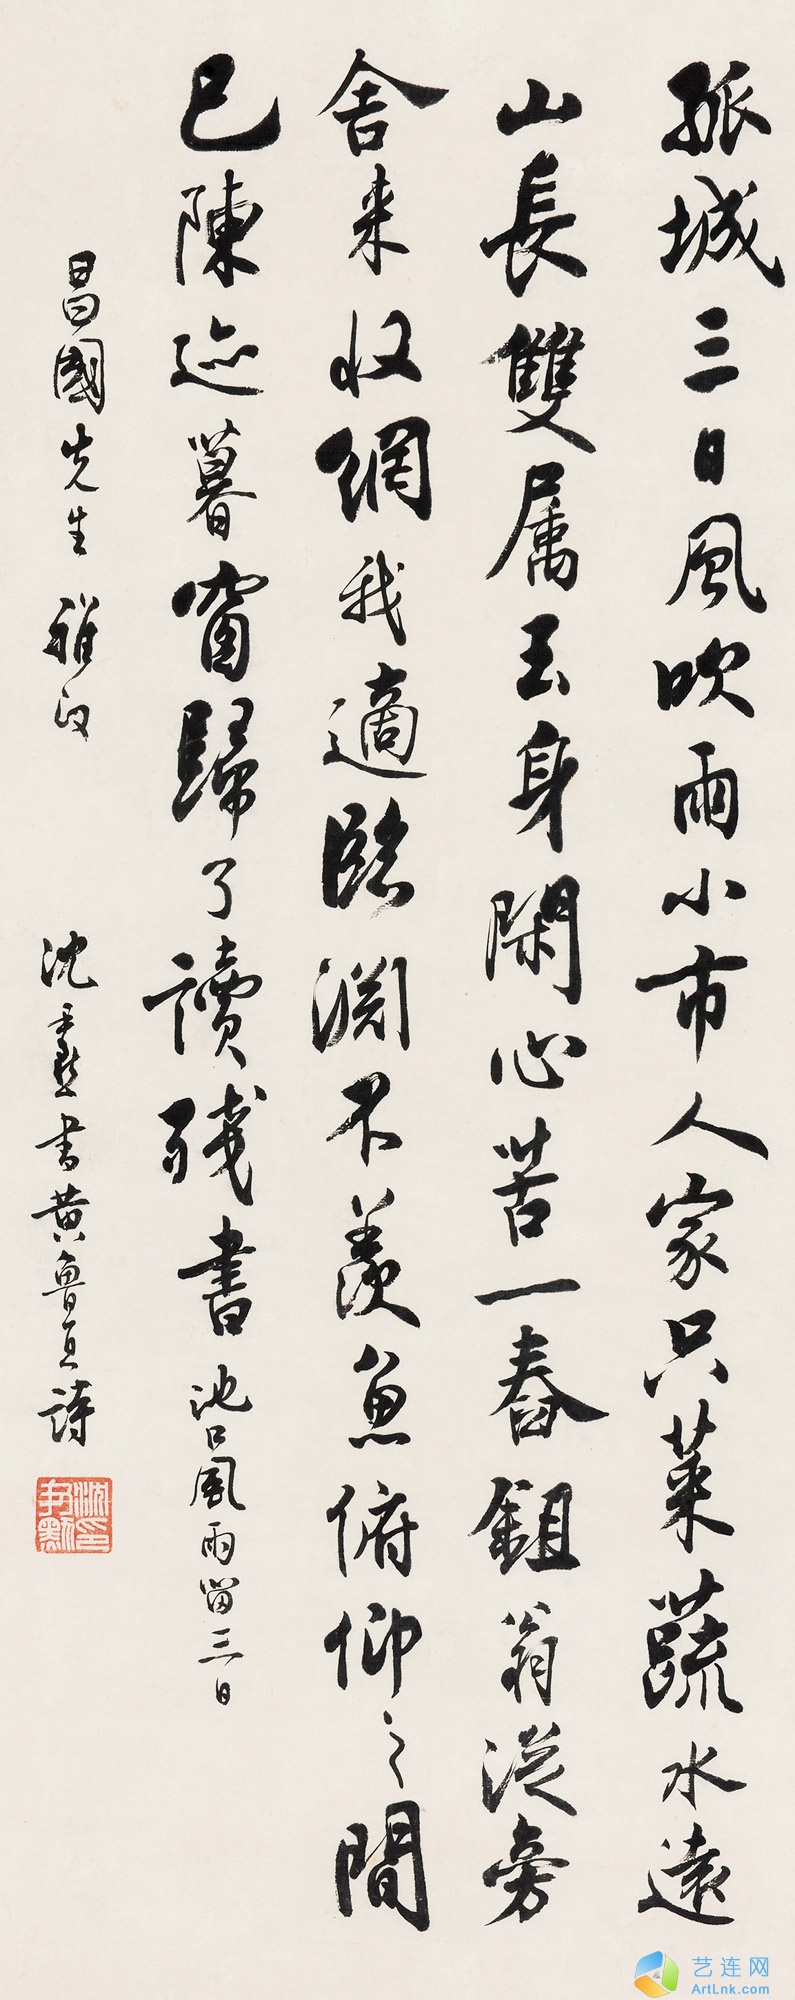 孤城三日風吹雨小市人家只菜蔬水遠
山長雙属玉身閑心苦一舂鉏翁從旁
舍来收網我適臨渊不羨魚俯仰之間
已陳迹暮窗歸了讀殘書池口風雨留三日
昌國先生雅政
沈尹默書黄魯直詩
沈尹默印
艺连网
ArtLnk.com